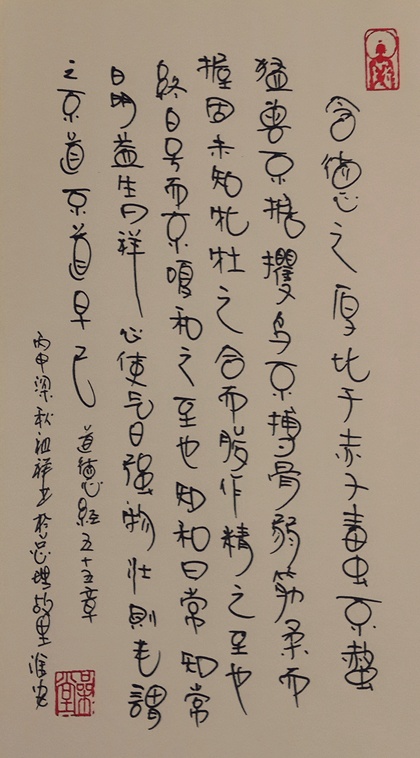 含德之厚比于赤子毒虫不螫
猛兽不据攫鸟不搏骨弱筋柔而
握固未知牝牡之合而朘作精之至也
終日号而不嗄和之至也知和曰常知常
曰明益生曰祥心使气曰强物壮則老謂
之不道不道早已
道德經五十五章
丙申深秋祖祥书於总理故里淮安